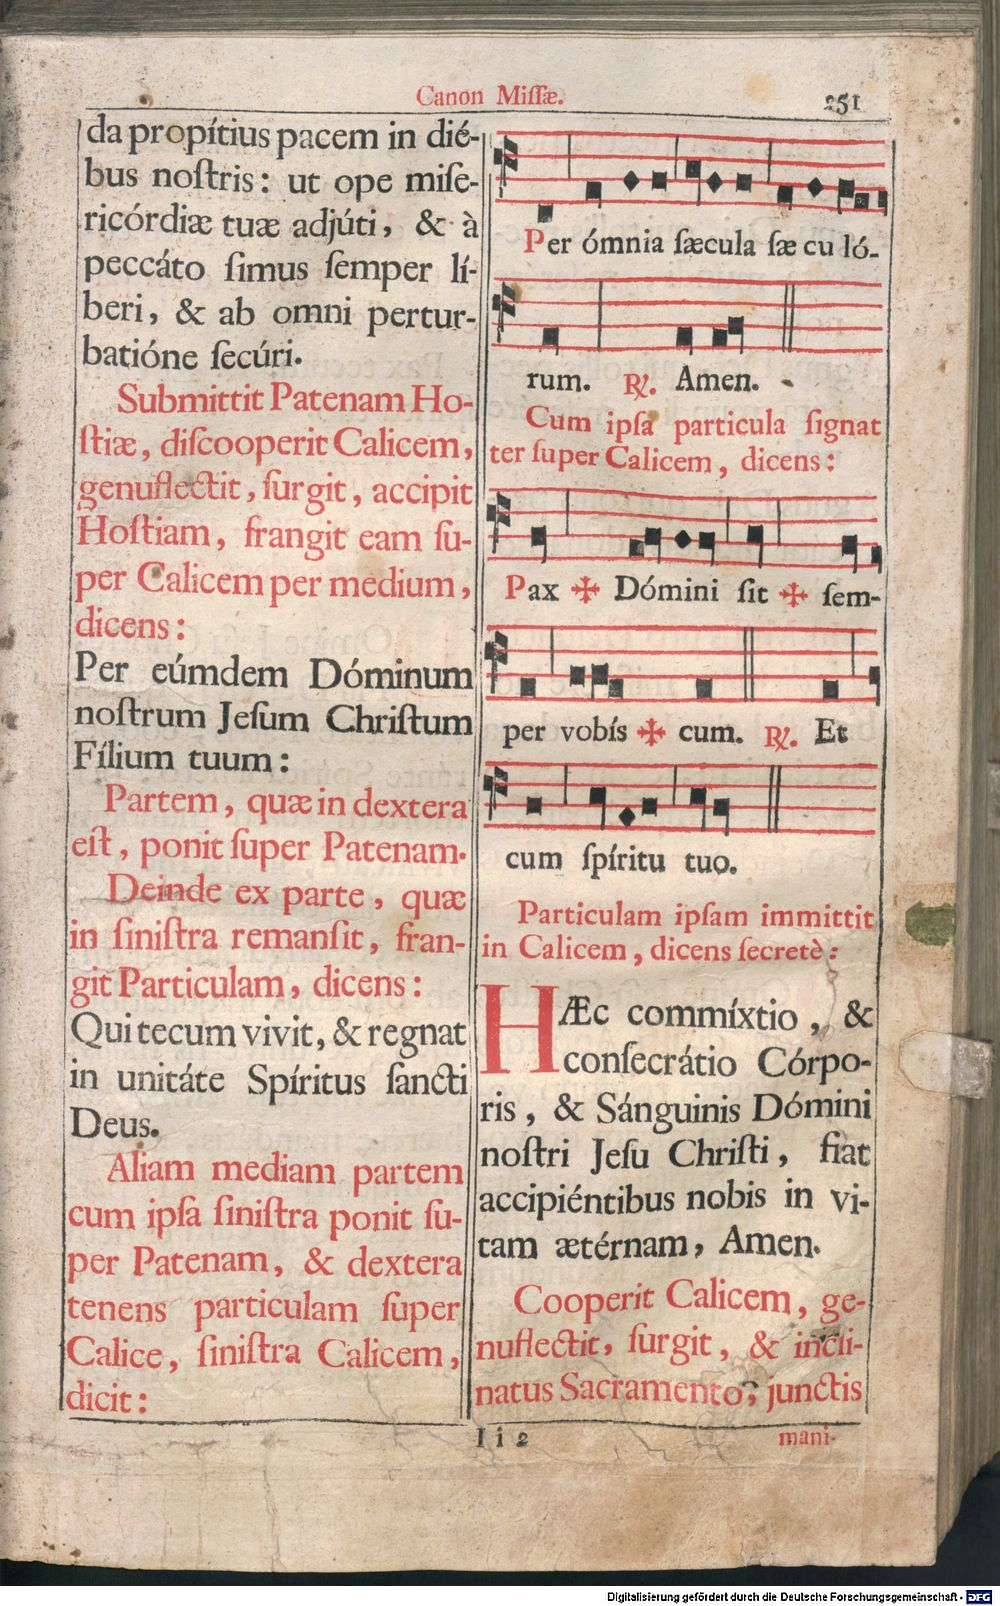 Canon Miſſæ.
251
da propítius pacem in dié-
bus noſtris: ut ope miſe-
ricórdiæ tuæ adjúti, & à
peccáto ſimus ſemper lí-
beri, & ab omni pertur-
batióne ſecúri.
Submittit Patenam Ho-
ſtiæ, diſcooperit Calicem,
genuflectit, ſurgit, accipit
Hoſtiam, frangit eam ſu-
per Calicem per medium,
dicens:
Per eúmdem Dóminum
noſtrum Jeſum Chriſtum
Fílium tuum:
Partem, quæ in dextera
eſt, ponit ſuper Patenam.
Deinde ex parte, quæ
in ſiniſtra remanſit, fran-
git Particulam, dicens:
Qui tecum vivit, & regnat
in unitáte Spíritus ſancti
Deus.
Aliam mediam partem
cum ipſa ſiniſtra ponit ſu-
per Patenam, & dextera
tenens particulam ſuper
Calice, ſiniſtra Calicem,
dicit:
Per ómnia ſæcula ſæ cu ló-
rum. ℟. Amen.
Cum ipſa particula ſignat
ter ſuper Calicem, dicens:
Pax ✠ Dómini ſit ✠ ſem-
per vobís ✠ cum. ℟. Et
cum ſpíritu tuo.
Particulam ipſam immittit
in Calicem, dicens ſecretè:
HÆc commíxtio, &
conſecrátio Córpo-
ris, & Sánguinis Dómini
noſtri Jeſu Chriſti, fiat
accipiéntibus nobis in vi-
tam ætérnam, Amen.
Cooperit Calicem, ge-
nuflectit, ſurgit, & incli-
natus Sacramento, junctis
I i 2
mani-
Digitalisierung gefördert durch die Deutsche Forschungsgemeinschaft - DFG